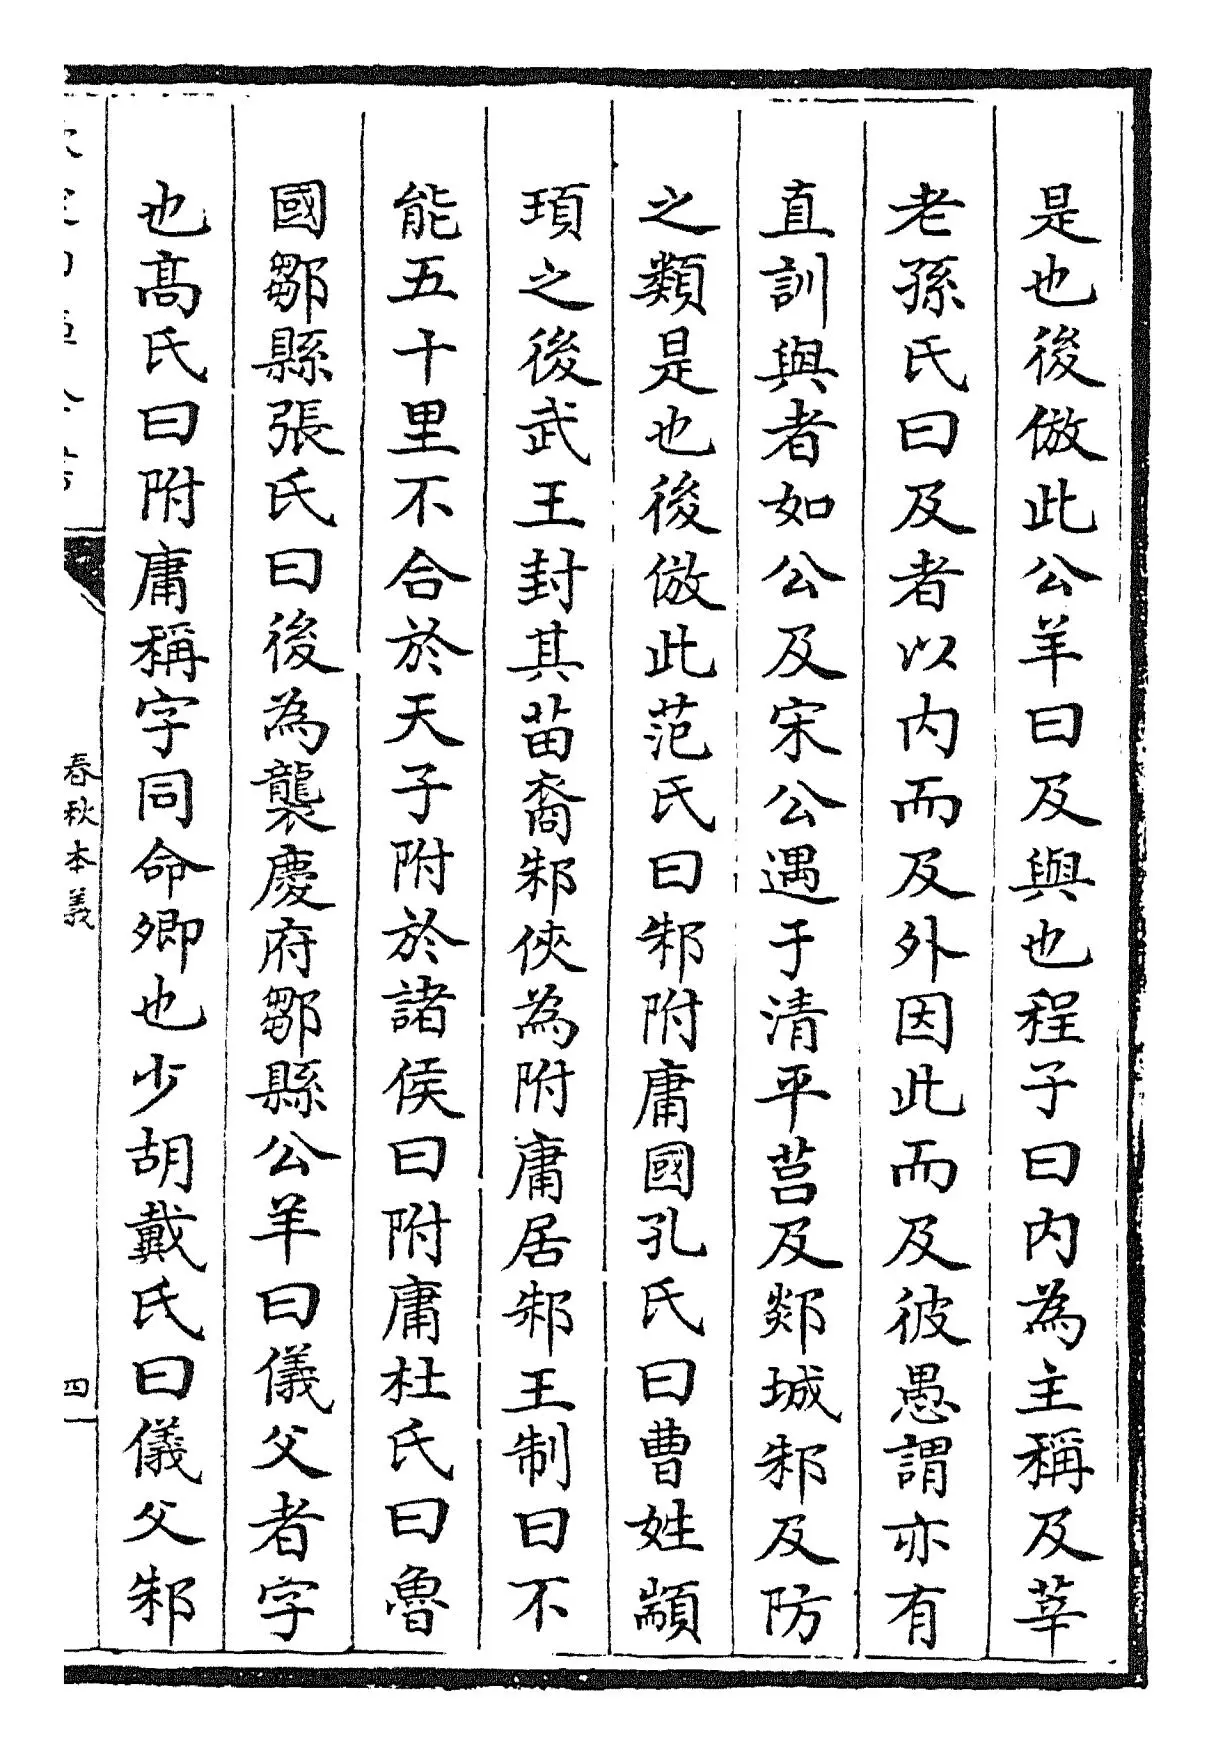 是也後倣此公羊曰及與也程子曰内為主稱及莘
老孫氏曰及者以内而及外因此而及彼愚謂亦有
直訓與者如公及宋公遇于清平莒及郯城邾及防
之類是也後倣此范氏曰邾附庸國孔氏曰曹姓顓
頊之後武王封其苗裔邾俠為附庸居邾王制曰不
能五十里不合於天子附於諸侯曰附庸杜氏曰魯
國鄒縣張氏曰後為襲慶府鄒縣公羊曰儀父者字
也髙氏曰附庸稱字同命卿也少胡戴氏曰儀父邾
春秋本義
四